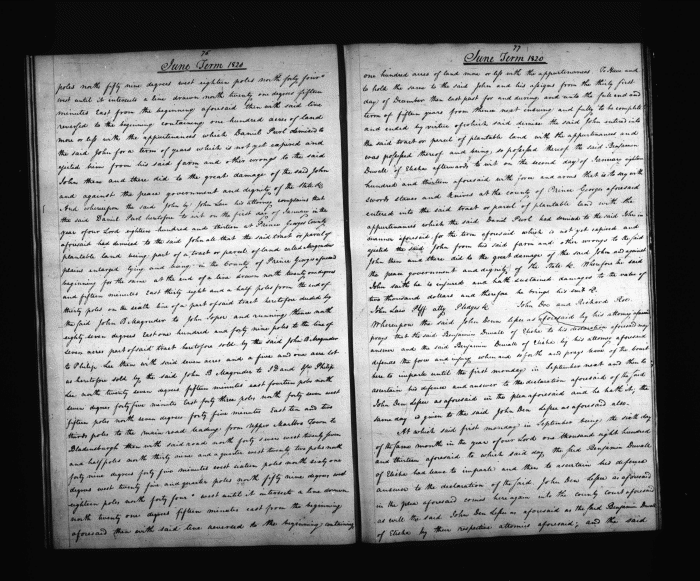 76
June Term 1820
poles north fifty nine degrees west eighteen poles north forty four°
west until it intersects a line drawn north twenty one degrees fifteen
minutes East from the beginning aforesaid then with said line
reversed to the beginning containing one hundred acres of land
more or less with the appurtenances which Daniel Purl demised to
the said John for a term of years which is not yet expired and
ejected him from his said farm and other wrongs to the said
John then and there did to the great damage of the said John
and against the peace government and dignity of the state &c
And whereupon the said John by John Law his attorney complains that
the said Daniel Purl heretofore to wit on the first day of January in the
year of our Lord eighteen hundred and thirteen at Prince Georges County
aforesaid had demised to the said John all that the said tract or parcel of
plantable land being part of a tract or parcel of land called Magruders
plains enlarged lying and being in the County of Prince Georges aforesaid
beginning for the same at the end of a line drawn north twenty one degrees
and fifteen minutes East thirty eight and a half poles from the end of
thirty poles on the south line of a part of said tract heretofore deeded by
the said John B. Magruder to John Soper and running thence north
eighty seven degrees East one hundred and forty nine poles to the line of
seven acres part of said tract heretofore sold by the said John B Magruder
to Philip Lee then with said seven acres and a five and one acre lot
as heretofore sold by the said John B Magruder to said Philip
Lee north twenty seven degrees fifteen minutes east fourteen poles north
seven degrees forty five minutes east forty three poles north seven west
fifteen poles north seven degrees forty five minutes East ten and two
thirds poles to the main road leading from upper Marlbro Town to
Bladensburgh then with said road north forty seven west twenty four
and half poles north thirty nine and a quarter west twenty two poles north
forty nine degrees forty five minutes west sixteen poles north sixty one
degrees west twenty five and quarter poles north fifty nine degrees west
eighteen poles north forty four° west until it intersects a line drawn
north twenty one degrees fifteen minutes east from the beginning
aforesaid then with said line reversed to the beginning containing
77
June Term 1820
one hundred acres of land more or less with the appurtenances To Have and
to hold the same to the said John and his assigns from the thirty first
day of December then last past for and during and unto the full end and
term of fifteen years from thence next ensuing and fully to be complete
and ended by virtue of which said demise the said John entered into
the said tract or parcel of plantable land with the appurtenances and
was possessed thereof and being so possessed thereof the said Benjamin
Duvall of Elisha afterwards to wit on the second day of January eighteen
hundred and thirteen aforesaid with force and arms that is to say with
swords staves and knives at the county of Prince Georges aforesaid
entered into the said tract or parcel of plantable land with the
appurtenances which the said Daniel Purl had demised to the said John in
manner aforesaid for the term aforesaid which is not yet expired and
ejected the said John from his said farm and other wrongs to the said
John then and there did to the great damage of the said John and against
the peace government and dignity of the State &c. Wherefore he said
John saith he is injured and hath sustained damages to the value of
two thousand dollars and therefore he brings his suit &c
John Law Plff atty Pledges &c John Doe and Richard Roe.
Whereupon the said John Denn Lessee as aforesaid by his attorney aforesaid
prays that the said Benjamin Duvall of Elisha to his declaration aforesaid may
answer and the said Benjamin Duvall of Elisha by his attorney aforesaid
defends the force and injury when and so forth and prays leave of the Court
here to imparle until the first monday in September next and then to
ascertain his defence and answer to the declaration aforesaid of the said
John Den Lessee as aforesaid in the plea aforesaid and he hath it, the
same day is given to the said John Den Lessee as aforesaid also.
At which said first monday in September being the sixth day
of the same month in the year of our Lord one thousand eight hundred
and thirteen aforesaid to which said day the said Benjamin Duvall
of Elisha had leave to imparle and then to ascertain his defence and
answer to the declaration of the said John Den Lessee as aforesaid
in the plea aforesaid comes here again into the county court aforesaid
as well the said John Den Lessee as aforesaid as the said Benjamin Duvall
of Elisha by their respective attornies aforesaid; and the said